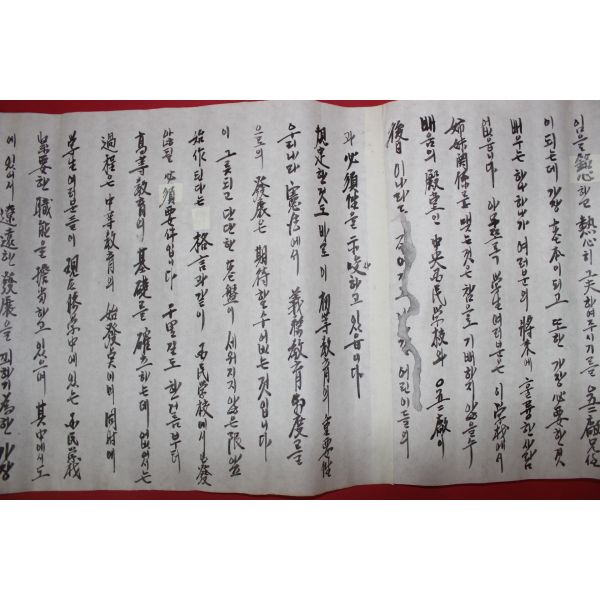 임을 銘心하고 熱心히 工夫하여주시기를
이 되는데 가장 基本이되고 또한 가장 必要한것
배우는 하나하나가 여러분의 將來에 훌륭한 사람
없읍니다 아무쪼록 學生 여러분은 이 學校에서
姉妹關係를 맺는것은 참으로 기쁘지 않을수
배움의 殿堂인 中央국民學校와
後 이나라를 어린이들의
과 必須性을 示唆하고 있읍니다
規定한것도 바로 이 初等教育의 重要性
우리나라 憲法에서 義務教育制度를
으로의 發展은 期待할수없는것입니다
이 그릇되고 단단한 基盤이 세워지지 않은 限 앞
始作된다는 格言과같이 国民学校에서 出發
않될 必須要件입니다 千里길도 한걸음부터
高等教育의 基礎를 確立하는데 없어서는
過程은 中等教育의 始發点이며 同時에
學生 여러분들이 現在 勝學中에 있는 国民學校
重要한 職能을 擔當하고 있으며 其中에서도
에 있어서 遼遠한 發展을 꾀하기爲한 가장